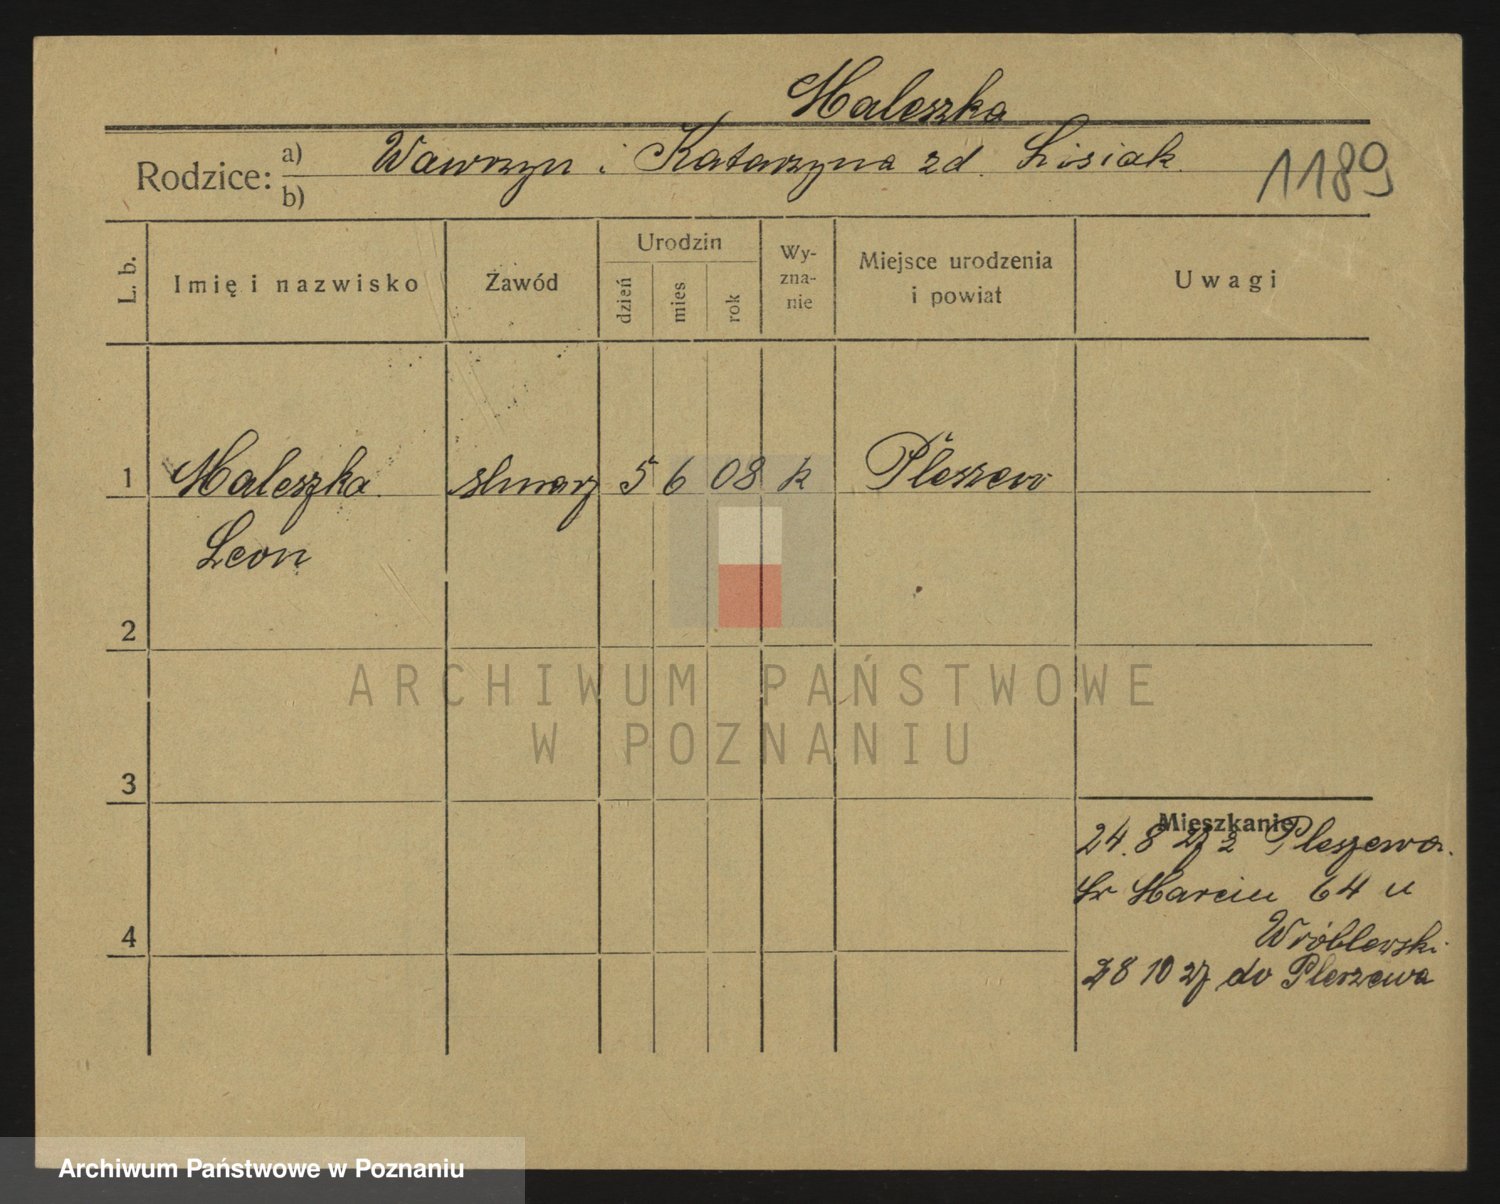 Maleszka
Rodzice: a) Wawrzyn i Katarzyna zd. Lisiak
b)
1189
L. b.
Imię i nazwisko
Zawód
Urodzin
dzień
mies
rok
Wy-
zna-
nie
Miejsce urodzenia
i powiat
Uwagi
1 Maleszka Leon
ślusarz 5 6 08 k Pleszew
2
3
4
Mieszkanie
24.8 27 z Pleszewa.
Św Marcin 64 u
Wróblewski
28 10 27 do Pleszewa
ARCHIWUM PAŃSTWOWE
W POZNANIU
Archiwum Państwowe w Poznaniu